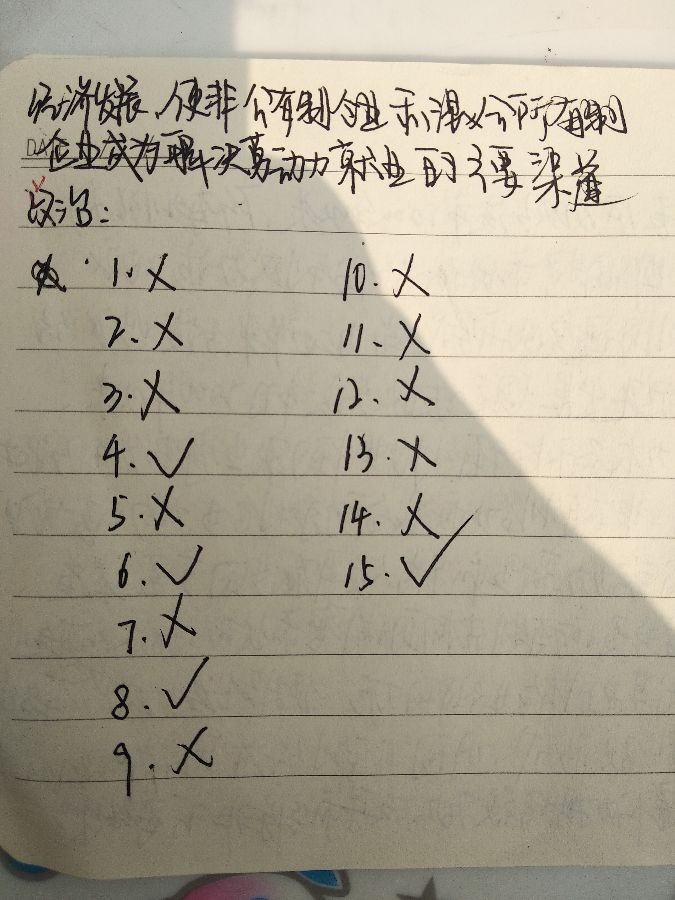 经济发展,使非公有制企业和混合所有制
企业成为解决劳动力就业的主要渠道
政治:
1. ×
2. ×
3. ×
4. √
5. ×
6. √
7. ×
8. √
9. ×
10. ×
11. ×
12. ×
13. ×
14. ×
15. √